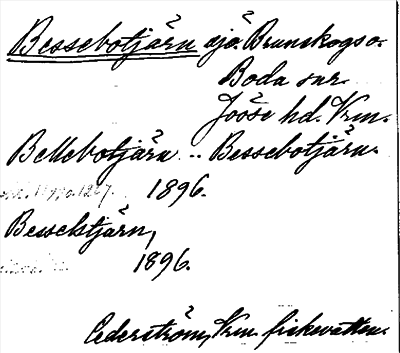 Bessebotjärn sjö. Brunskogs o.
Boda snr.
Jösse hd. Vrm.
Bellebotjärn .. Bessebotjärn.
1896.
Bessektjärn,
1896.
Cederström, Vrm. fiskevatten.